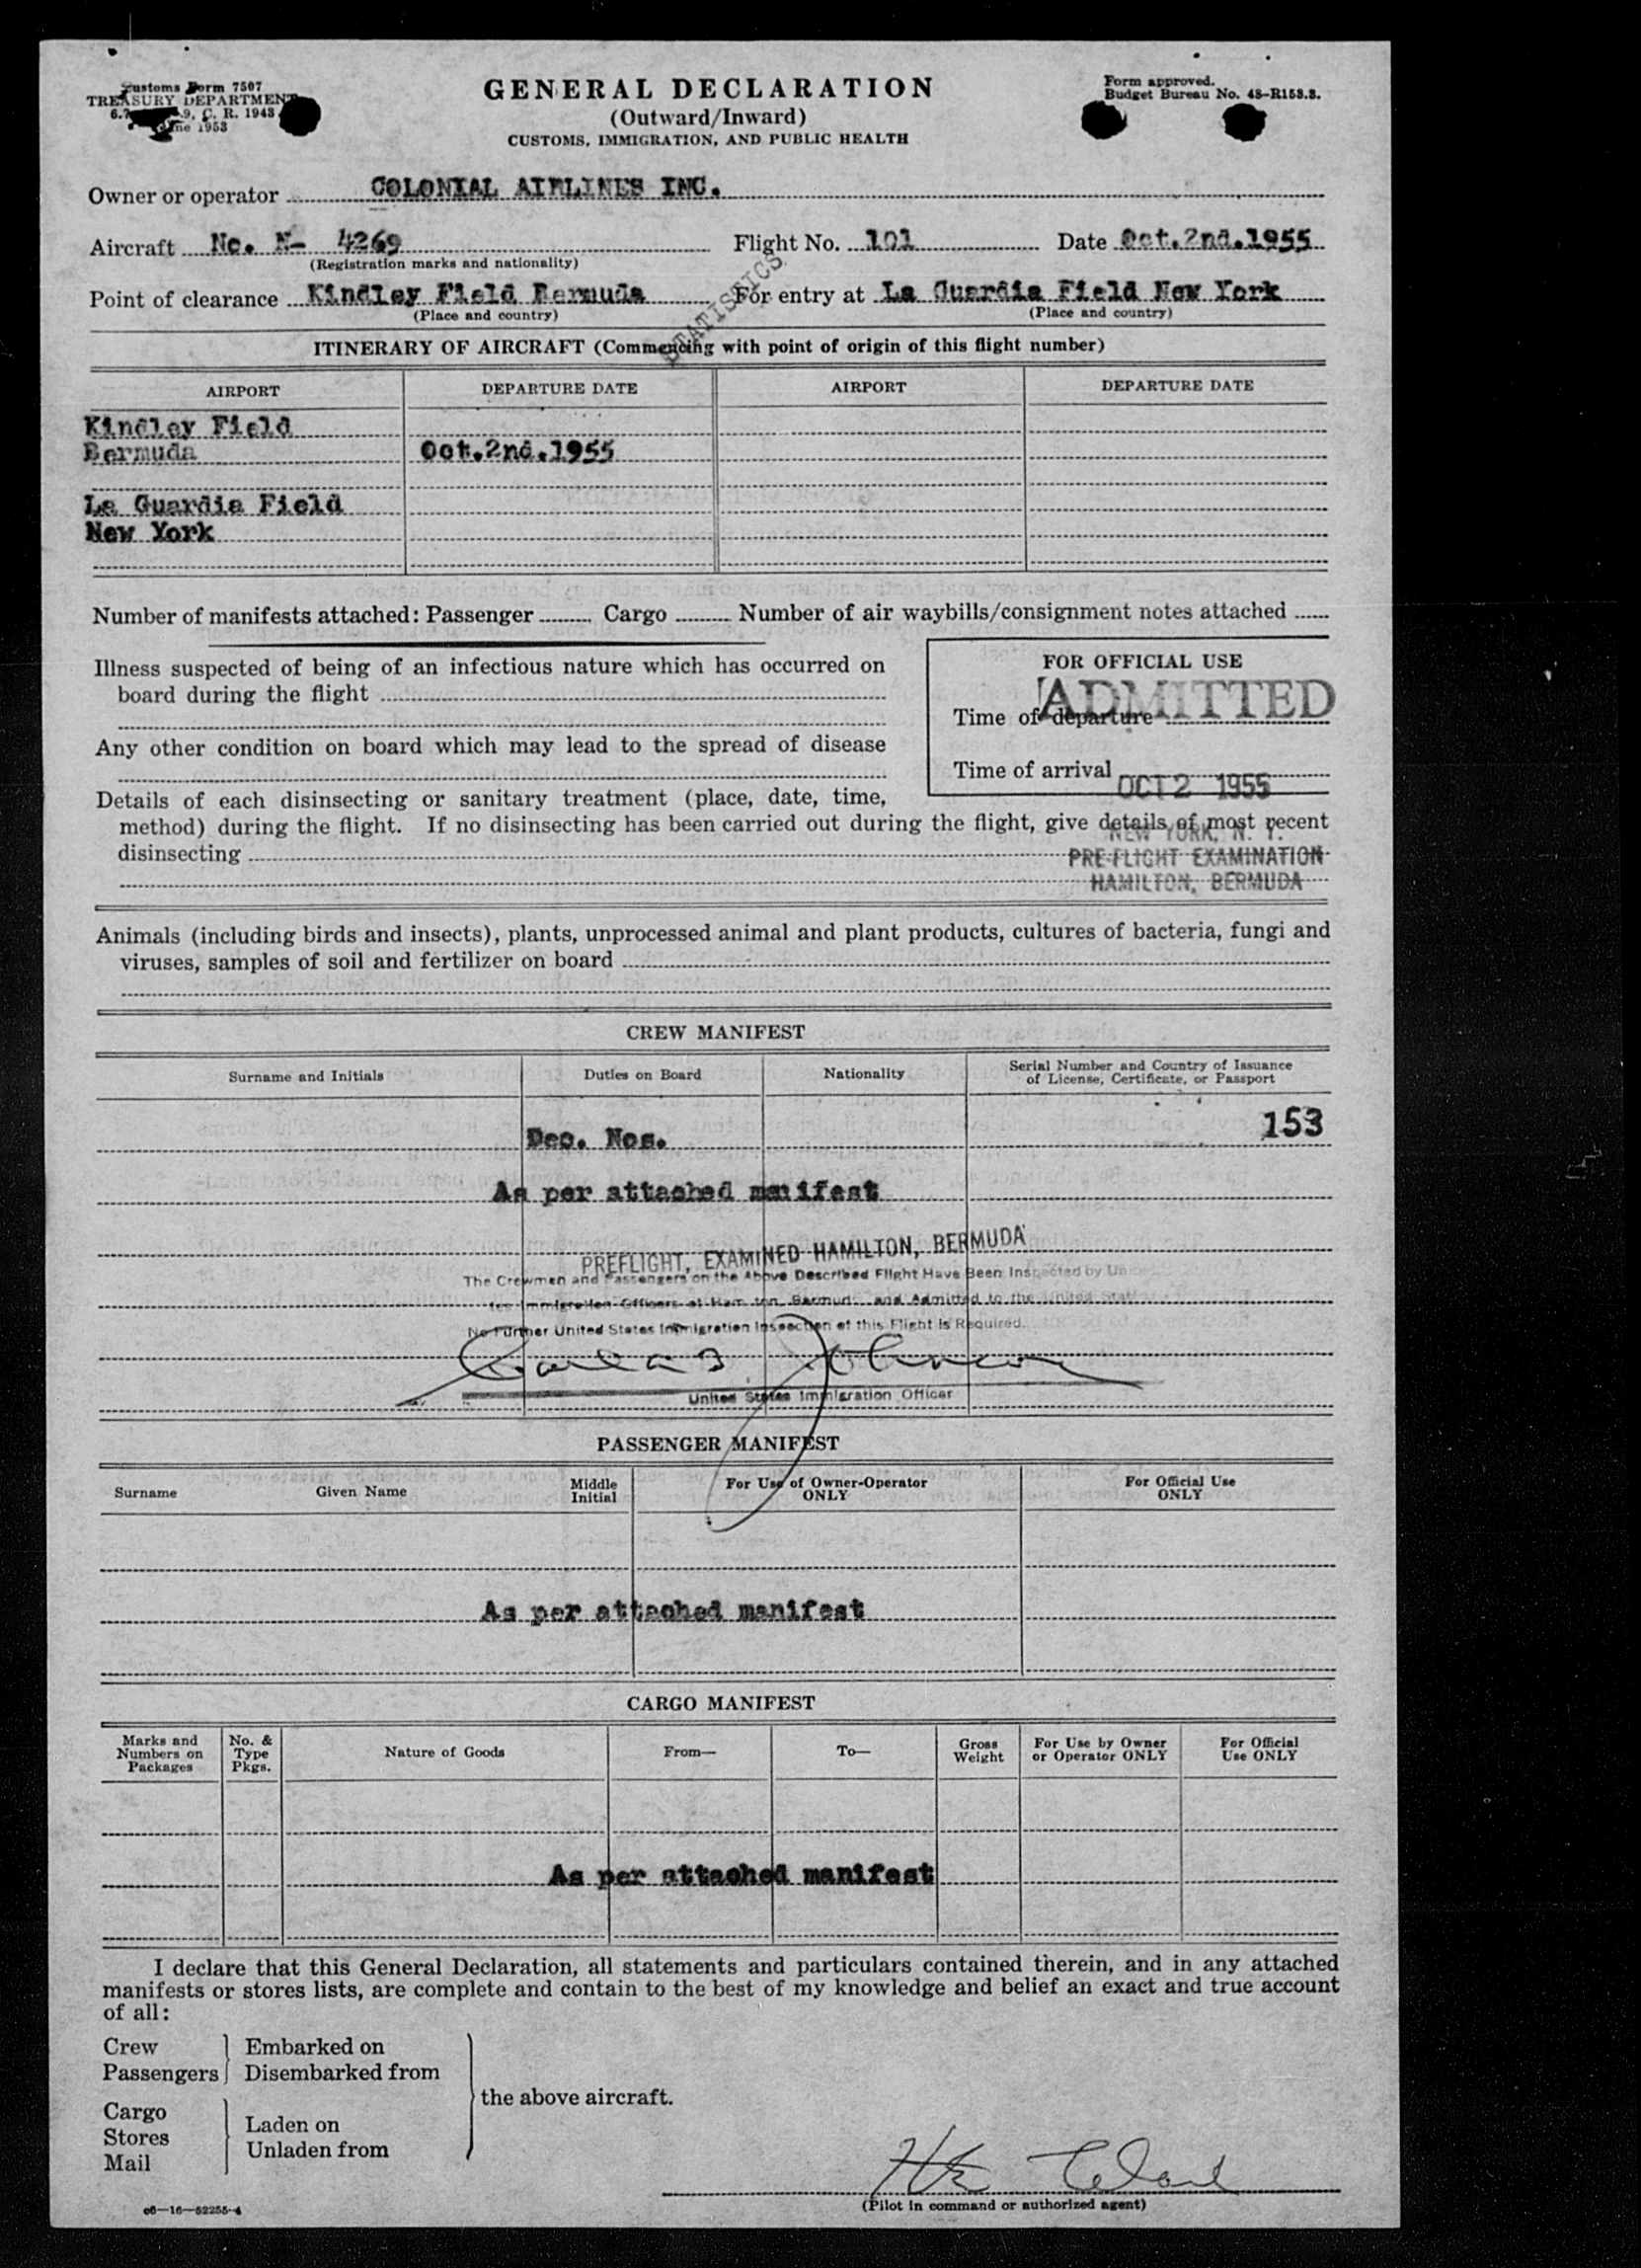 Customs Form 7507
TREASURY DEPARTMENT
C. R. 1943
1953
GENERAL DECLARATION
(Outward/Inward)
CUSTOMS, IMMIGRATION, AND PUBLIC HEALTH
Form approved.
Budget Bureau No. 48-R153.3.
Owner or operator COLONIAL AIRLINES INC.
Aircraft No. N- 4269 Flight No. 101 Date Oct.2nd.1955
(Registration marks and nationality)
STATISTICS
Point of clearance Kindley Field Bermuda For entry at La Guardia Field New York
(Place and country) (Place and country)
ITINERARY OF AIRCRAFT (Commencing with point of origin of this flight number)
AIRPORT DEPARTURE DATE AIRPORT DEPARTURE DATE
Kindley Field
Bermuda Oct.2nd.1955
La Guardia Field
New York
Number of manifests attached: Passenger Cargo Number of air waybills/consignment notes attached
Illness suspected of being of an infectious nature which has occurred on
board during the flight
Any other condition on board which may lead to the spread of disease
FOR OFFICIAL USE
ADMITTED
Time of departure
Time of arrival
OCT 2 1955
Details of each disinsecting or sanitary treatment (place, date, time,
method) during the flight. If no disinsecting has been carried out during the flight, give details of most recent
disinsecting
NEW YORK, N. Y.
PRE-FLIGHT EXAMINATION
HAMILTON, BERMUDA
Animals (including birds and insects), plants, unprocessed animal and plant products, cultures of bacteria, fungi and
viruses, samples of soil and fertilizer on board
CREW MANIFEST
Surname and Initials Duties on Board Nationality Serial Number and Country of Issuance
of License, Certificate, or Passport
153
Dec. Nos.
As per attached manifest
PREFLIGHT, EXAMINED HAMILTON, BERMUDA
The Crewmen and Passengers on the Above Described Flight Have Been Inspected by
Immigration Officers at Hamilton, Bermuda and Admitted to the United States
No Further United States Immigration Inspection of this Flight Is Required.
Johnson
United States Immigration Officer
PASSENGER MANIFEST
Surname Given Name Middle
Initial For Use of Owner-Operator
ONLY For Official Use
ONLY
As per attached manifest
CARGO MANIFEST
Marks and
Numbers on
Packages No. &
Type
Pkgs. Nature of Goods From— To— Gross
Weight For Use by Owner
or Operator ONLY For Official
Use ONLY
As per attached manifest
I declare that this General Declaration, all statements and particulars contained therein, and in any attached
manifests or stores lists, are complete and contain to the best of my knowledge and belief an exact and true account
of all:
Crew Embarked on
Passengers Disembarked from
the above aircraft.
Cargo
Stores Laden on
Mail Unladen from
(Pilot in command or authorized agent)
c6—16—52255-4